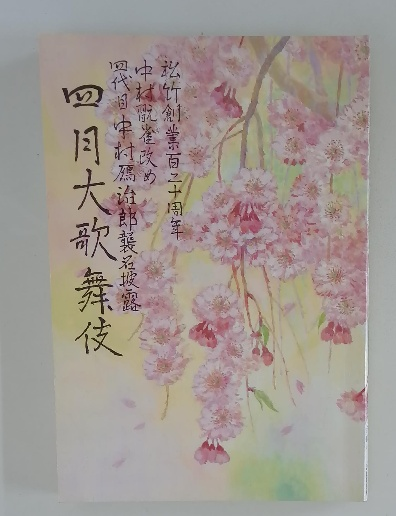 松竹創業百二十周年
中村翫雀改め
四代目中村鴈治郎襲名披露
四月大歌舞伎